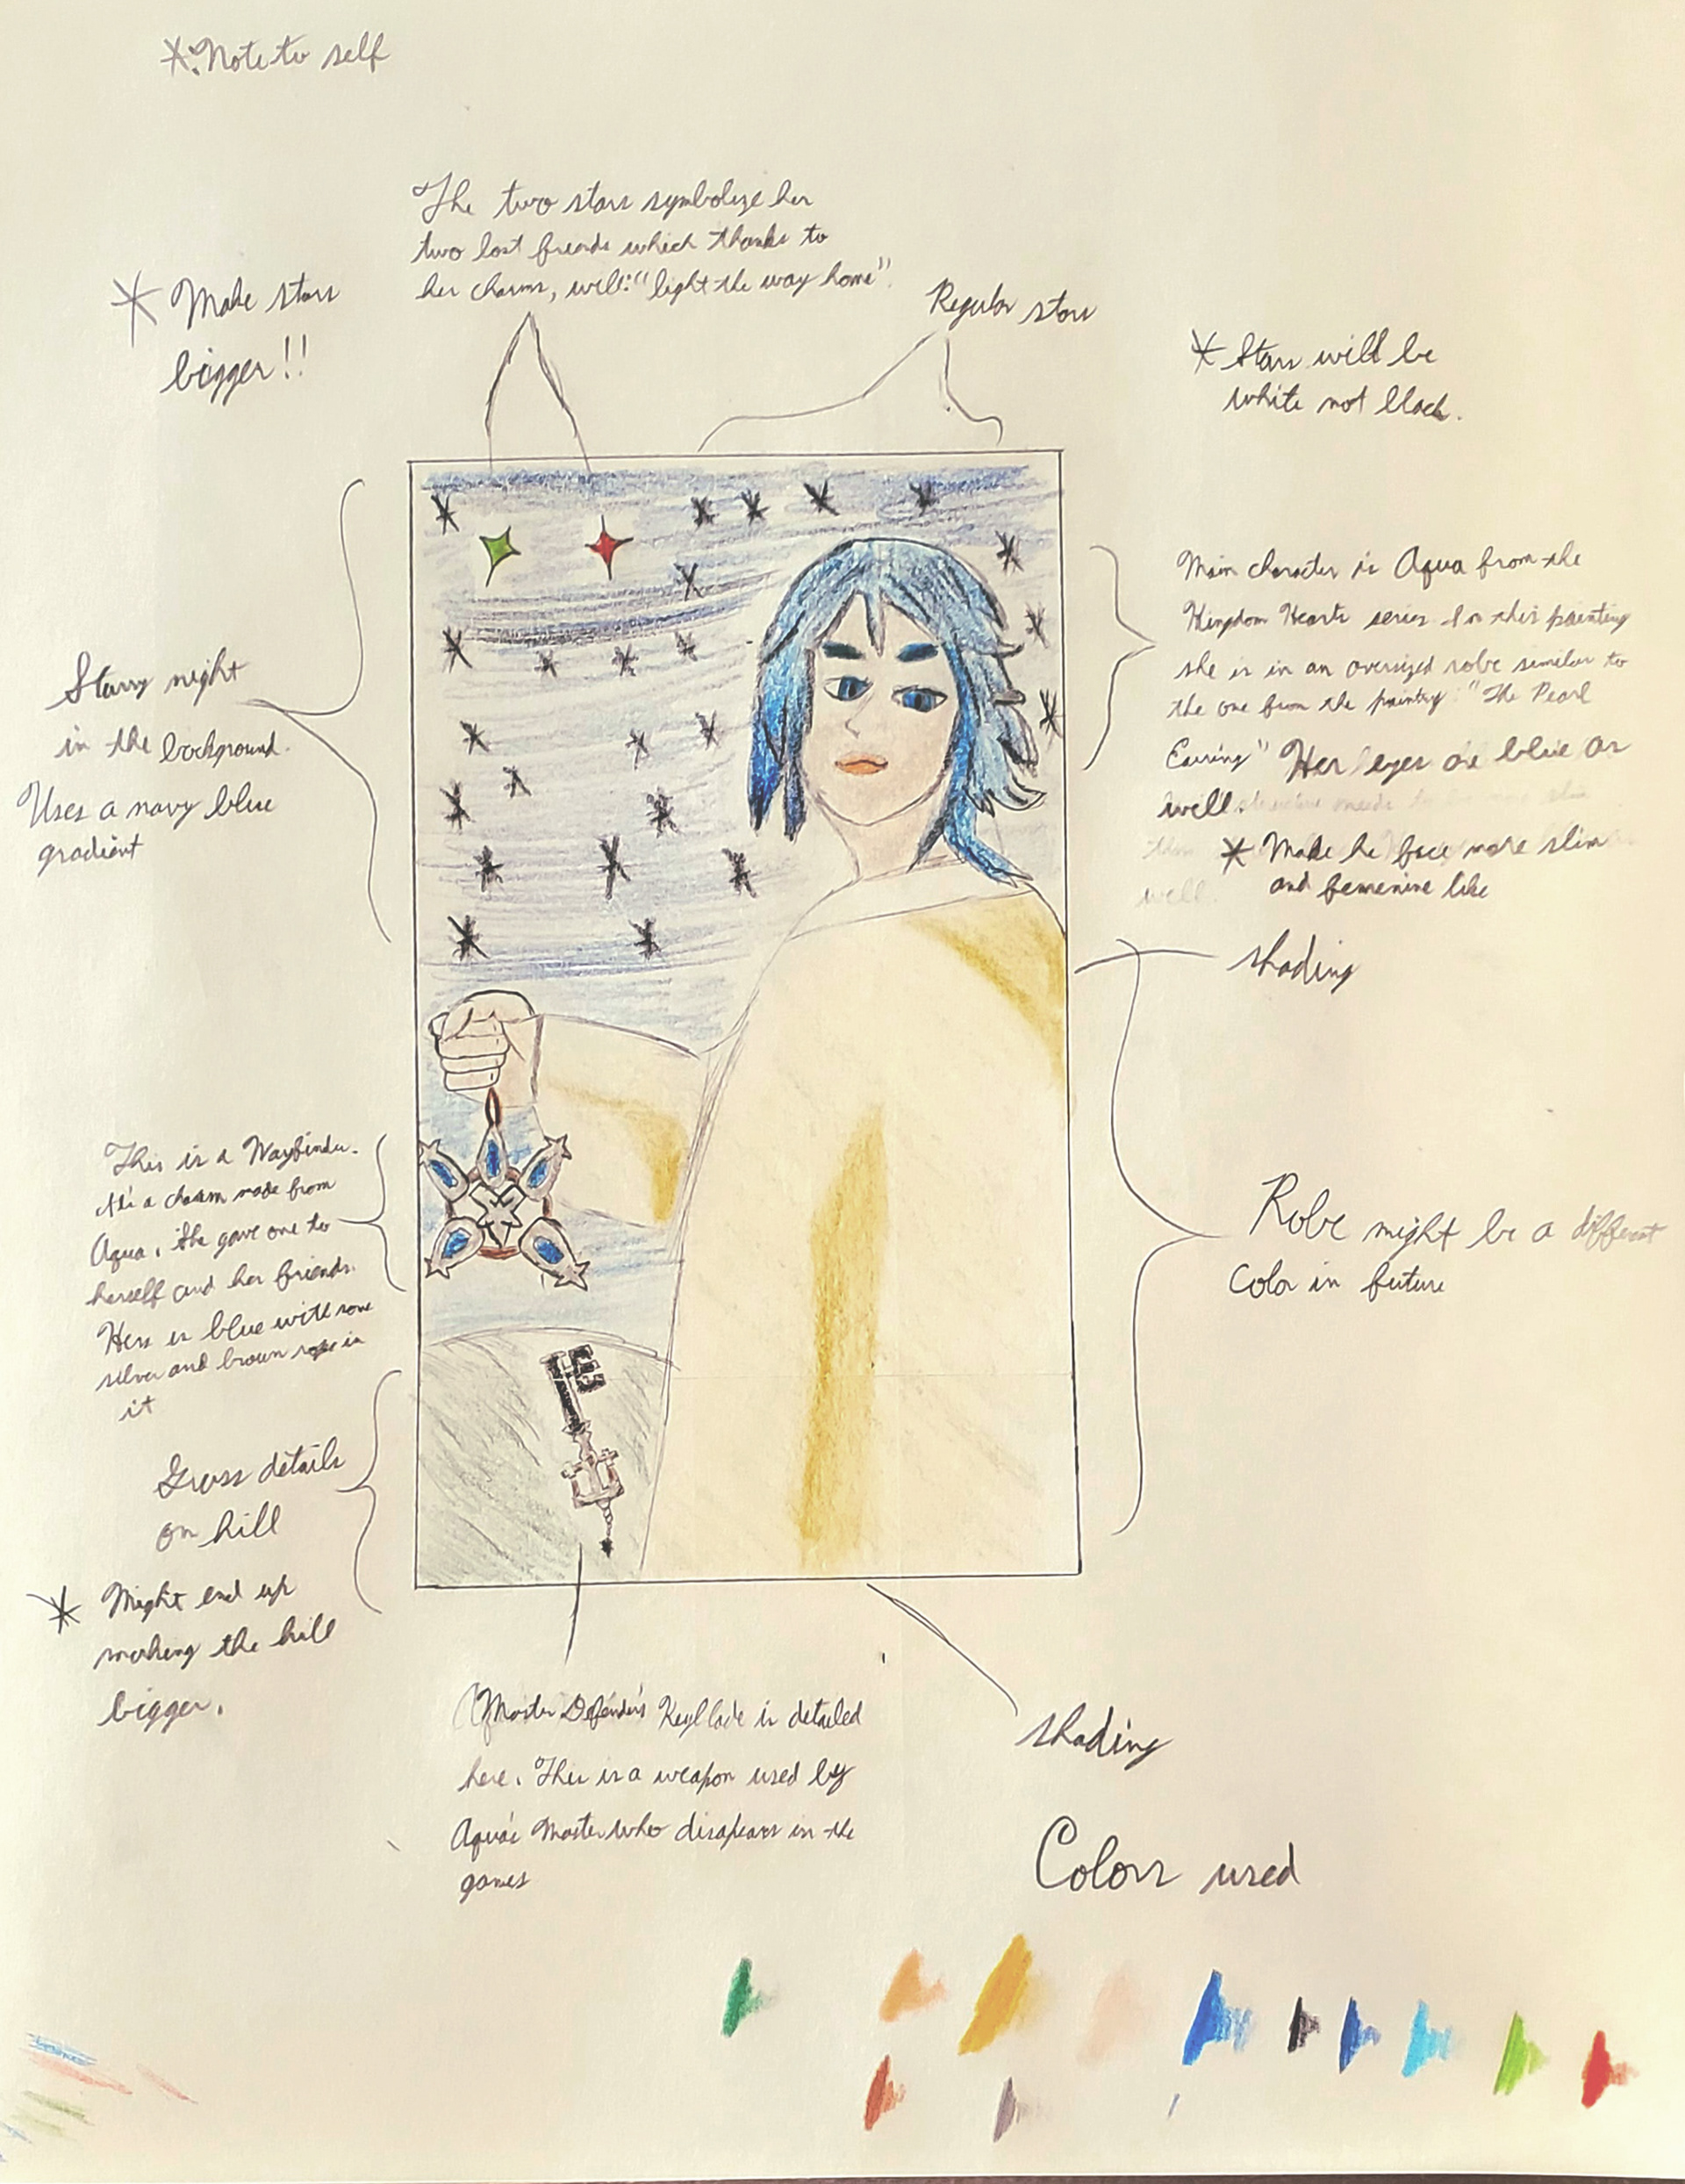 *: Note to self
The two stars symbolize her
two lost friends which thanks to
her charms, will: "light the way home".
* Make stars
bigger!!
Regular stars
* Stars will be
white not black.
Main character is Aqua from the
Kingdom Hearts series. In this painting
she is in an oversized robe similar to
the one from the painting: "The Pearl
Earring" Her eyes are blue as
well.
* Make he face more slim
and femenine like
well.
shading
Starry night
in the background.
Uses a navy blue
gradient
This is a Wayfinder.
It's a charm made from
Aqua. She gave one to
herself and her friends.
Hers is blue with some
silver and brown rope in
it
Robe might be a different
Color in future
Grass details
on hill
* Might end up
making the hill
bigger.
Master Defender's Keyblade is detailed
here. This is a weapon used by
Aqua's Master who disapears in the
games
shading
Colors used